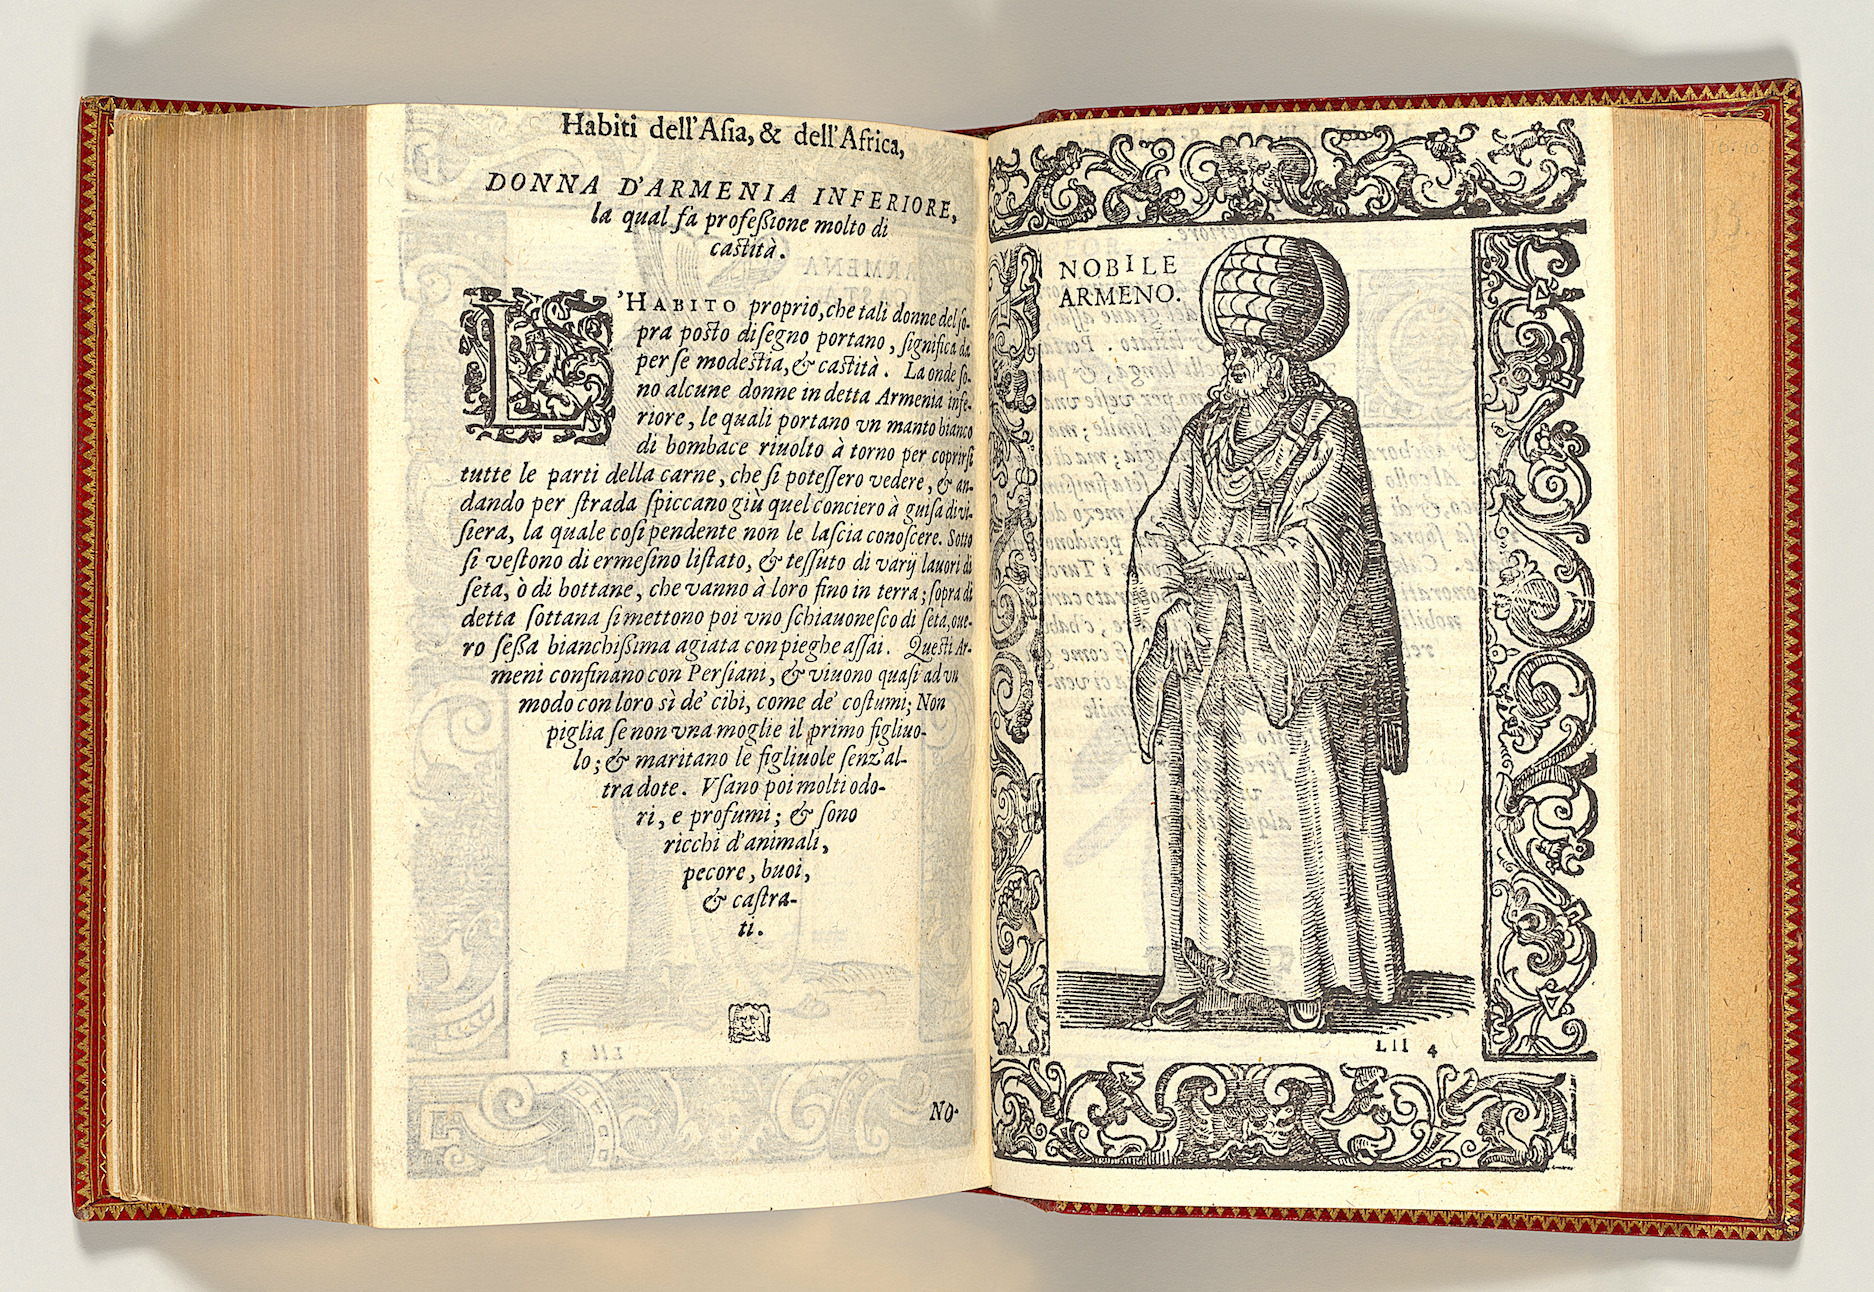 Habiti dell'Aſia, & dell'Africa,
DONNA D'ARMENIA INFERIORE,
la qual fa profeſsione molto di
caſtità.
L'HABITO proprio, che tali donne del ſo-
pra poſto diſegno portano, ſignifica da
per ſe modeſtia, & caſtità. La onde ſo-
no alcune donne in detta Armenia infe-
riore, le quali portano vn manto bianco
di bombace riuolto à torno per coprirſi
tutte le parti della carne, che ſi poteſſero vedere, & an-
dando per ſtrada ſpiccano giù quel conciero à guiſa di vi-
ſiera, la quale coſi pendente non le laſcia conoſcere. Sotto
ſi veſtono di ermeſino liſtato, & teſſuto di varij lauori di
ſeta, ò di bottane, che vanno à loro fino in terra; ſopra di
detta ſottana ſi mettono poi vno ſchiauoneſco di ſeta, oue-
ro ſeſſa bianchiſsima agiata con pieghe aſſai. Queſti Ar-
meni confinano con Perſiani, & viuono quaſi ad vn
modo con loro sì de' cibi, come de' coſtumi; Non
piglia ſe non vna moglie il primo figliuo-
lo; & maritano le figliuole ſenz'al-
tra dote. Vſano poi molti odo-
ri, e profumi; & ſono
ricchi d'animali,
pecore, buoi,
& caſtra-
ti.
NO-
NOBILE
ARMENO.
Lll 4